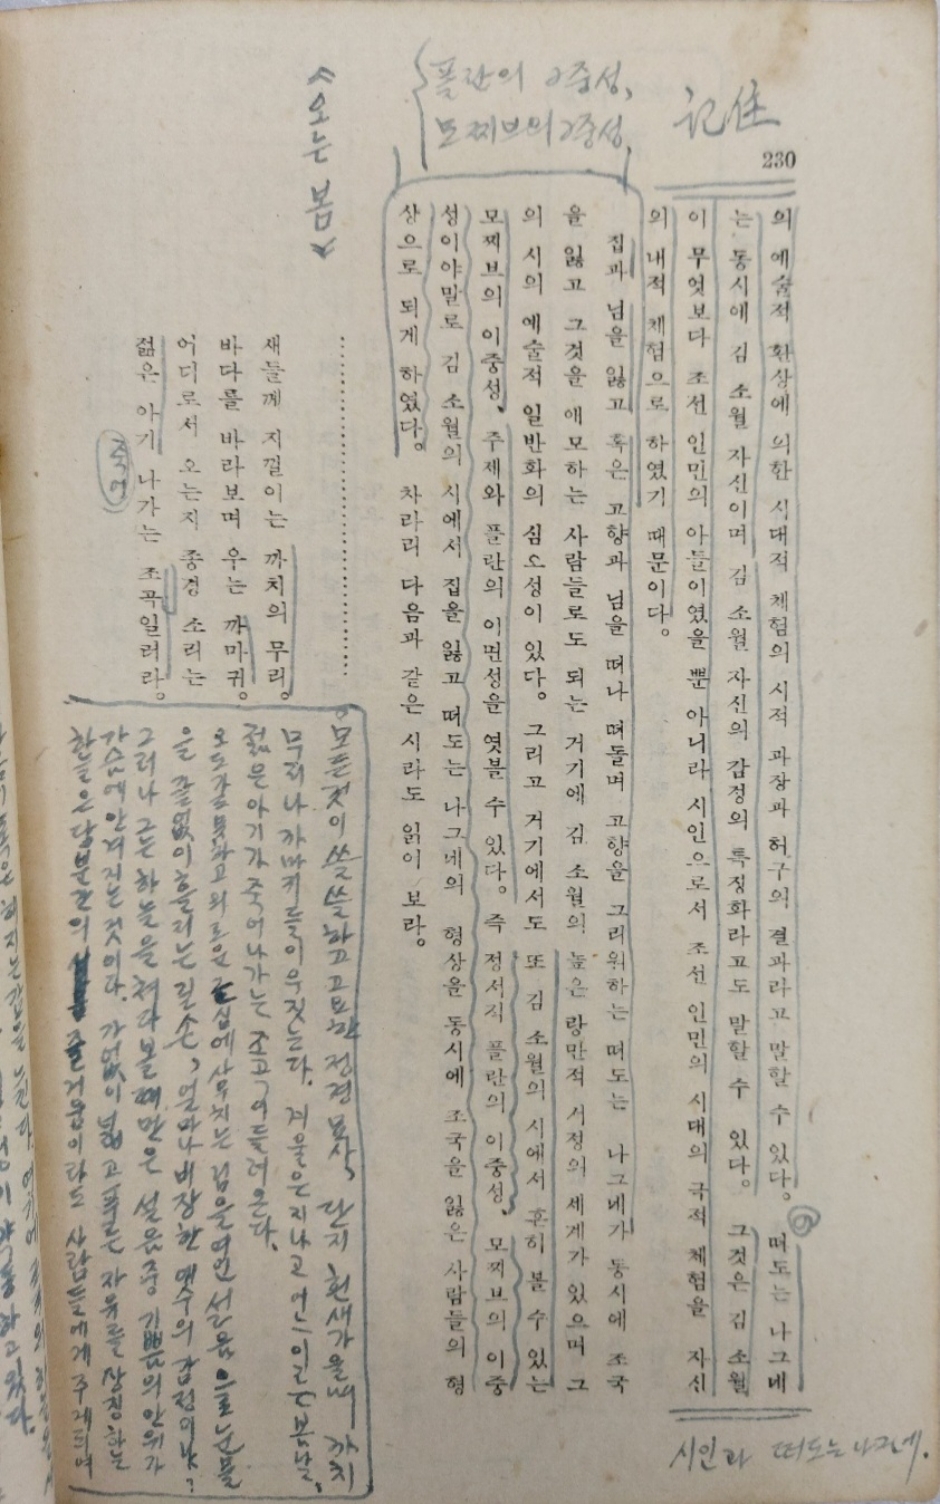 {플란의 2중성,
모찌브의 2중성,
記住
230
의 예술적 환상에 의한 시대적 체험의 시적 과장과 허구의 결과라고 말할 수 있다. 떠도는 나그네
는 동시에 김 소월 자신이며 김 소월 자신의 감정의 특징화라고도 말할 수 있다. 그것은 김 소월
이 무엇보다 조선 인민의 아들이였을 뿐 아니라 시인으로서 조선 인민의 시대의 극적 체험을 자신
의 내적 체험으로 하였기 때문이다.
집과 님을 잃고 혹은 고향과 님을 떠나 떠돌며 고향을 그리워하는 떠도는 나그네가 동시에 조국
을 잃고 그것을 애모하는 사람들로도 되는 거기에 김 소월의 높은 랑만적 서정의 세계가 있으며 그
의 시의 예술적 일반화의 심오성이 있다. 그리고 거기에서도 또 김 소월의 시에서 흔히 볼 수 있는
모찌브의 이중성, 주제와 플란의 이면성을 엿볼 수 있다. 즉 정서적 플란의 이중성, 모찌브의 이중
성이야말로 김 소월의 시에서 집을 잃고 떠도는 나그네의 형상을 동시에 조국을 잃은 사람들의 형
상으로 되게 하였다. 차라리 다음과 같은 시라도 읽어 보라.
《오는 봄》
새들께 지껄이는 까치의 무리.
바다를 바라보며 우는 까마귀.
어디로서 오는지 종경 소리는
젊은 아기 나가는 조곡일러라.
죽어
모든것이 쓸쓸하고 고요한 정경묘사, 단지 흰새가울며 까치
무리나 까마귀들이 우짖는다. 겨울은 지나고 어느 이른 봄날,
젊은 아기가 죽어나가는 조곡이 들려온다.
오도가도 못하고 외로운 심에 사무치는 설음으로 눈물
을 끝없이 흘리는 길손, 얼마나 비장한 애수의 감정이냐?
그러나 그는 하늘을 쳐다볼때만은 설음중 기쁨의 안위가
가슴에 안겨지는것이다. 가없이 넓고 푸른 자유를 상징하는
하늘은 당분간의 즐거움이라도 사람들에게 주게되며
시인과 떠도는 나그네.